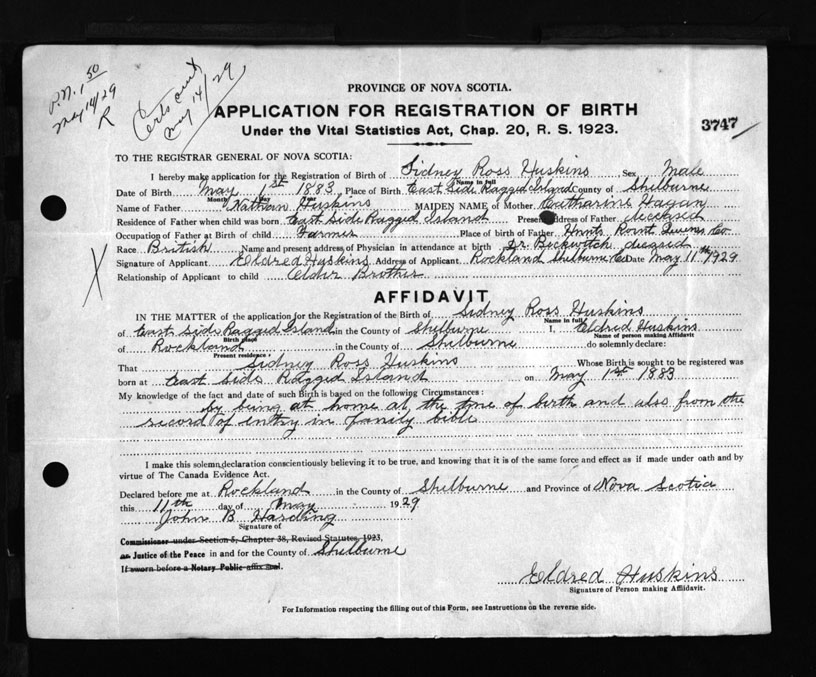 P.N. 1 50
May 14/29
R
Certs out
May 14/29
PROVINCE OF NOVA SCOTIA.
APPLICATION FOR REGISTRATION OF BIRTH
Under the Vital Statistics Act, Chap. 20, R. S. 1923.
3747
TO THE REGISTRAR GENERAL OF NOVA SCOTIA:
I hereby make application for the Registration of Birth of Sidney Ross Huskins Sex Male
Name in full
Date of Birth May 1st 1883 Place of Birth East Side Ragged Island County of Shelburne
Month Day Year
Name of Father Nathan Huskins MAIDEN NAME of Mother Catharine Hagan
Residence of Father when child was born East Side Ragged Island Present Address of Father deceased
Occupation of Father at Birth of child Farmer Place of birth of Father Hunts Point Queens Co.
Race British Name and present address of Physician in attendance at birth Dr. deceased
Signature of Applicant Eldred Huskins Address of Applicant Rockland Shelburne Co Date May 11th 1929
Relationship of Applicant to child Elder Brother
X
AFFIDAVIT
IN THE MATTER of the application for the Registration of the Birth of Sidney Ross Huskins
Name in full
of East Side Ragged Island in the County of Shelburne I, Eldred Huskins
Birth place Name of person making Affidavit
of Rockland in the County of Shelburne do solemnly declare:
Present residence
That Sidney Ross Huskins Whose Birth is sought to be registered was
born at East Side Ragged Island on May 1st 1883
My knowledge of the fact and date of such Birth is based on the following Circumstances:
by being at home at the time of birth and also from the
record of entry in family bible
I make this solemn declaration conscientiously believing it to be true, and knowing that it is of the same force and effect as if made under oath and by
virtue of The Canada Evidence Act.
Declared before me at Rockland in the County of Shelburne and Province of Nova Scotia
this 11th day of May 1929
John B Harding
Signature of
Commissioner under Section 5, Chapter 38, Revised Statutes, 1923,
or Justice of the Peace in and for the County of Shelburne
If sworn before a Notary Public affix seal.
Eldred Huskins
Signature of Person making Affidavit.
For Information respecting the filling out of this Form, see Instructions on the reverse side.